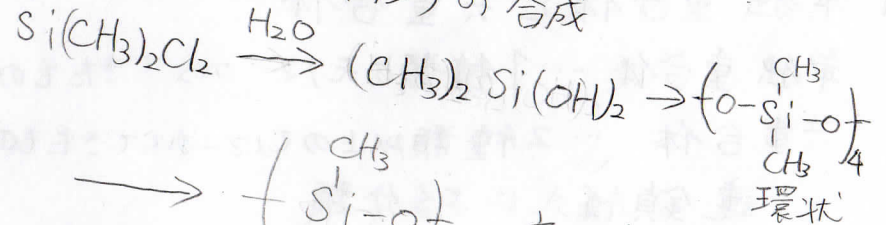 合成
Si(CH3)2Cl2 H2O→ (CH3)2Si(OH)2 → (O-Si-O)4
CH3
CH3
環状
→ (
CH3
Si-O)